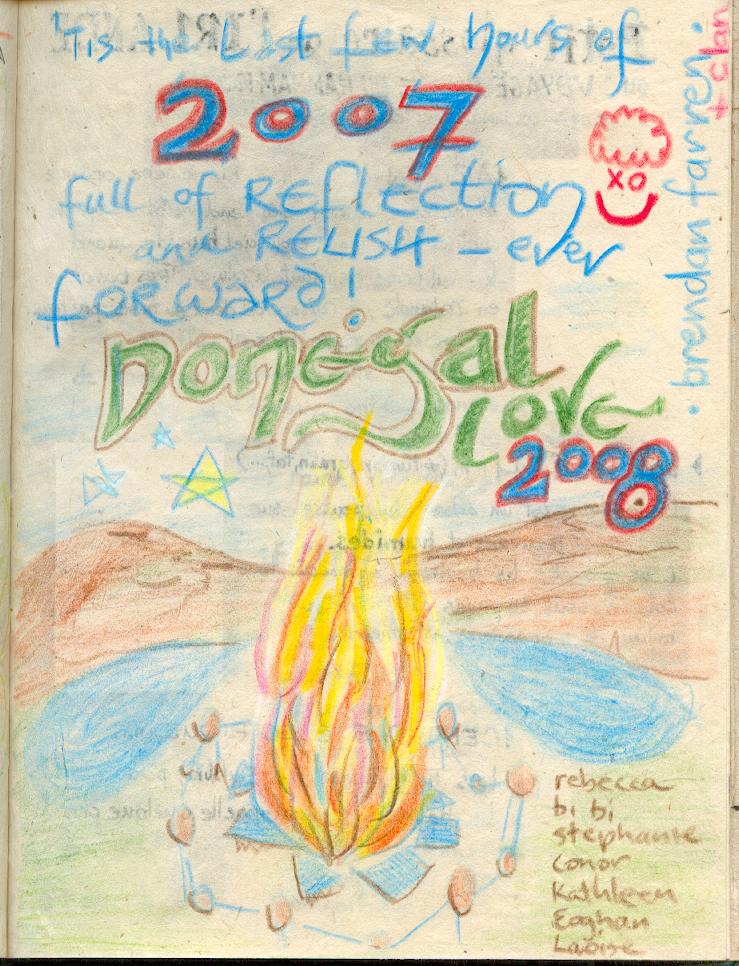 'Tis the Last few hours of
2007
full of REflection
and RELISH – ever
forward!
Donegal
Love
2008
xo
• brendan farren •
+ clan
rebecca
bi bi
stephanie
conor
Kathleen
Eoghan
Laoise